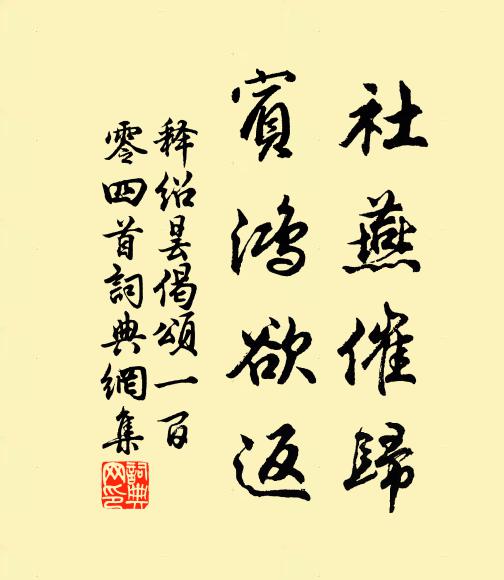 社燕催歸
賓鴻欲返
釋紹曇偈頌一百
零四首詞典網集
詞典網印